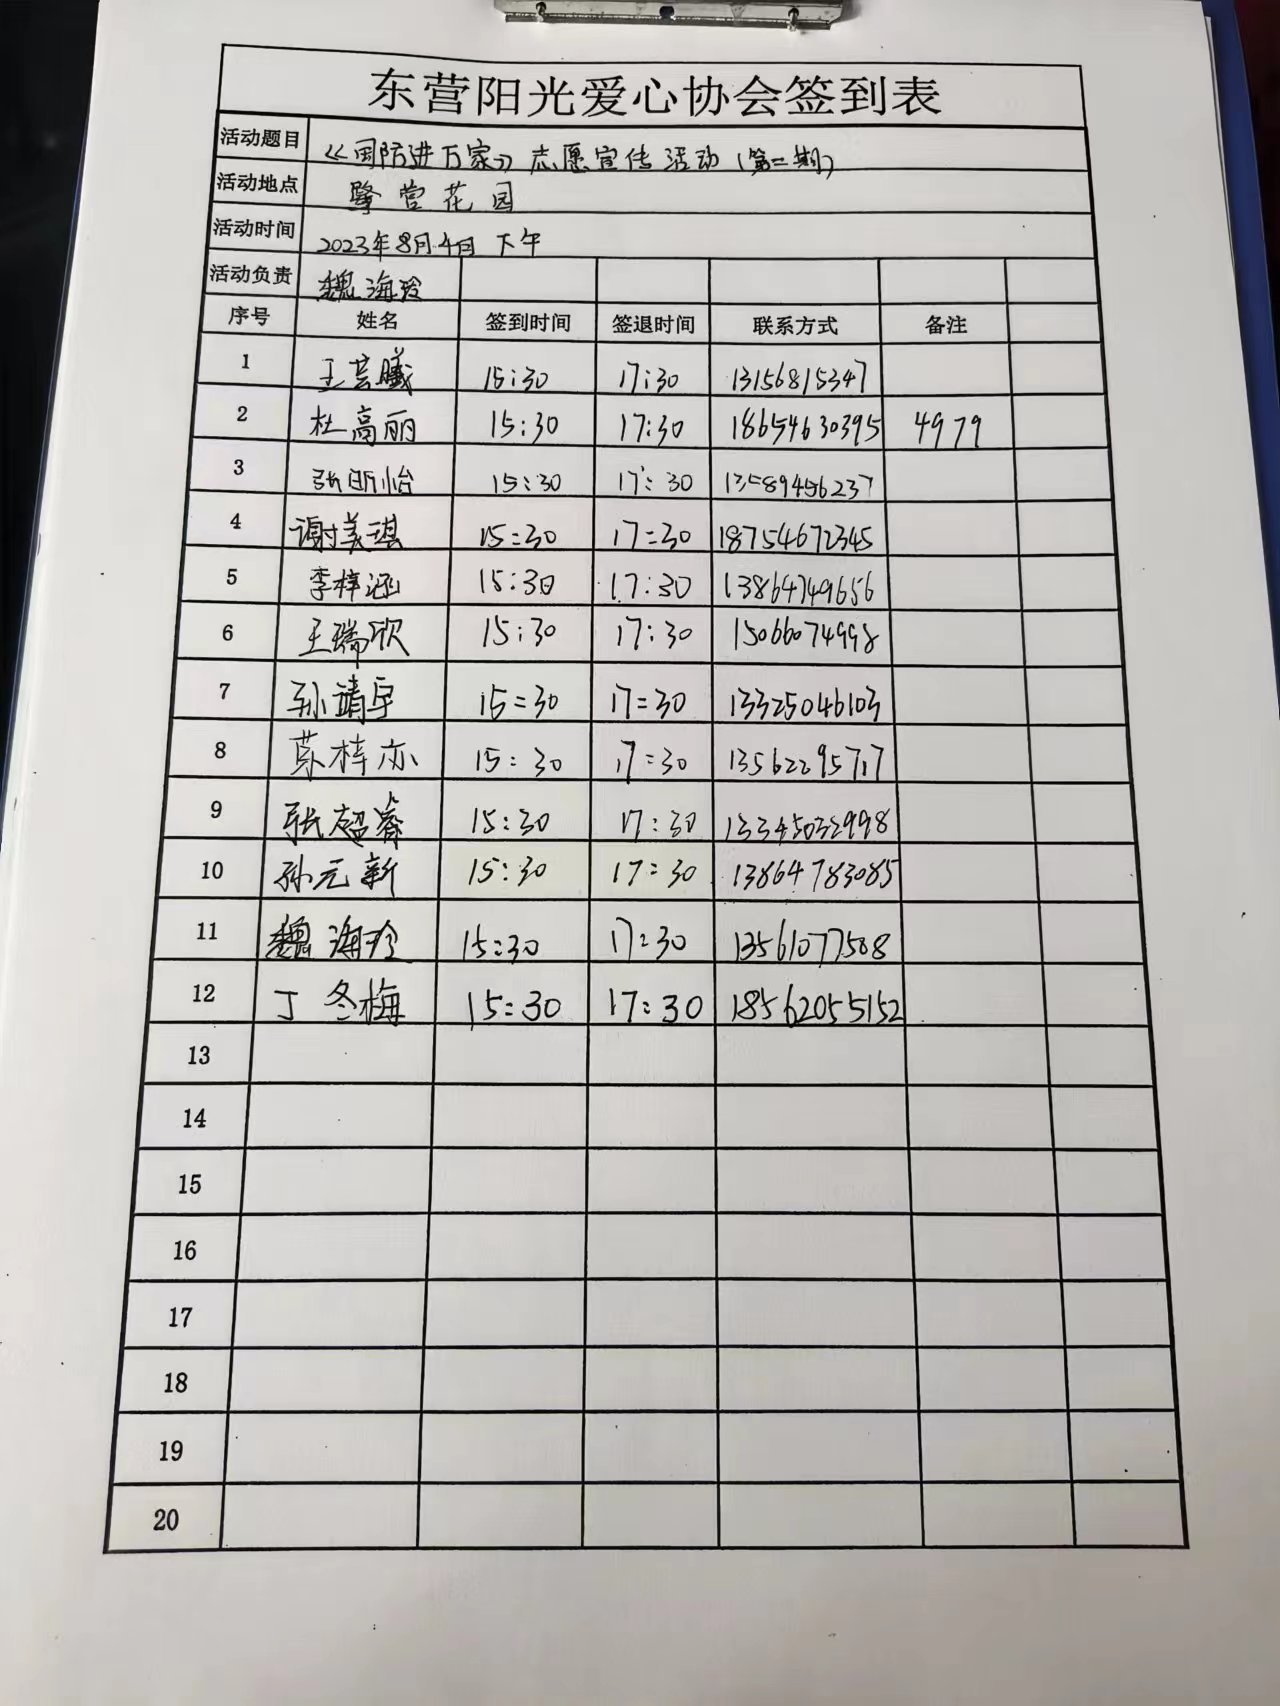 东营阳光爱心协会签到表
活动题目 《国防进万家》志愿宣传活动(第二期)
活动地点 鹭营花园
活动时间 2023年8月4日 下午
活动负责 魏海玲
序号 姓名 签到时间 签退时间 联系方式 备注
1 王芸曦 15:30 17:30 13156815347
2 杜高丽 15:30 17:30 18654630395 4979
3 张昕怡 15:30 17:30 13589456237
4 谢美琪 15:30 17:30 18754672345
5 李梓涵 15:30 17:30 13864749656
6 王瑞欣 15:30 17:30 15066074998
7 孙靖宇 15:30 17:30 13325046103
8 苏梓亦 15:30 17:30 13562295717
9 张超睿 15:30 17:30 13345032998
10 孙元新 15:30 17:30 13864783085
11 魏海玲 15:30 17:30 13561077508
12 丁冬梅 15:30 17:30 18562055152
13
14
15
16
17
18
19
20